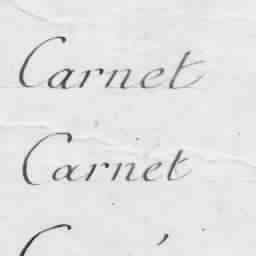 Carnet
Carnet